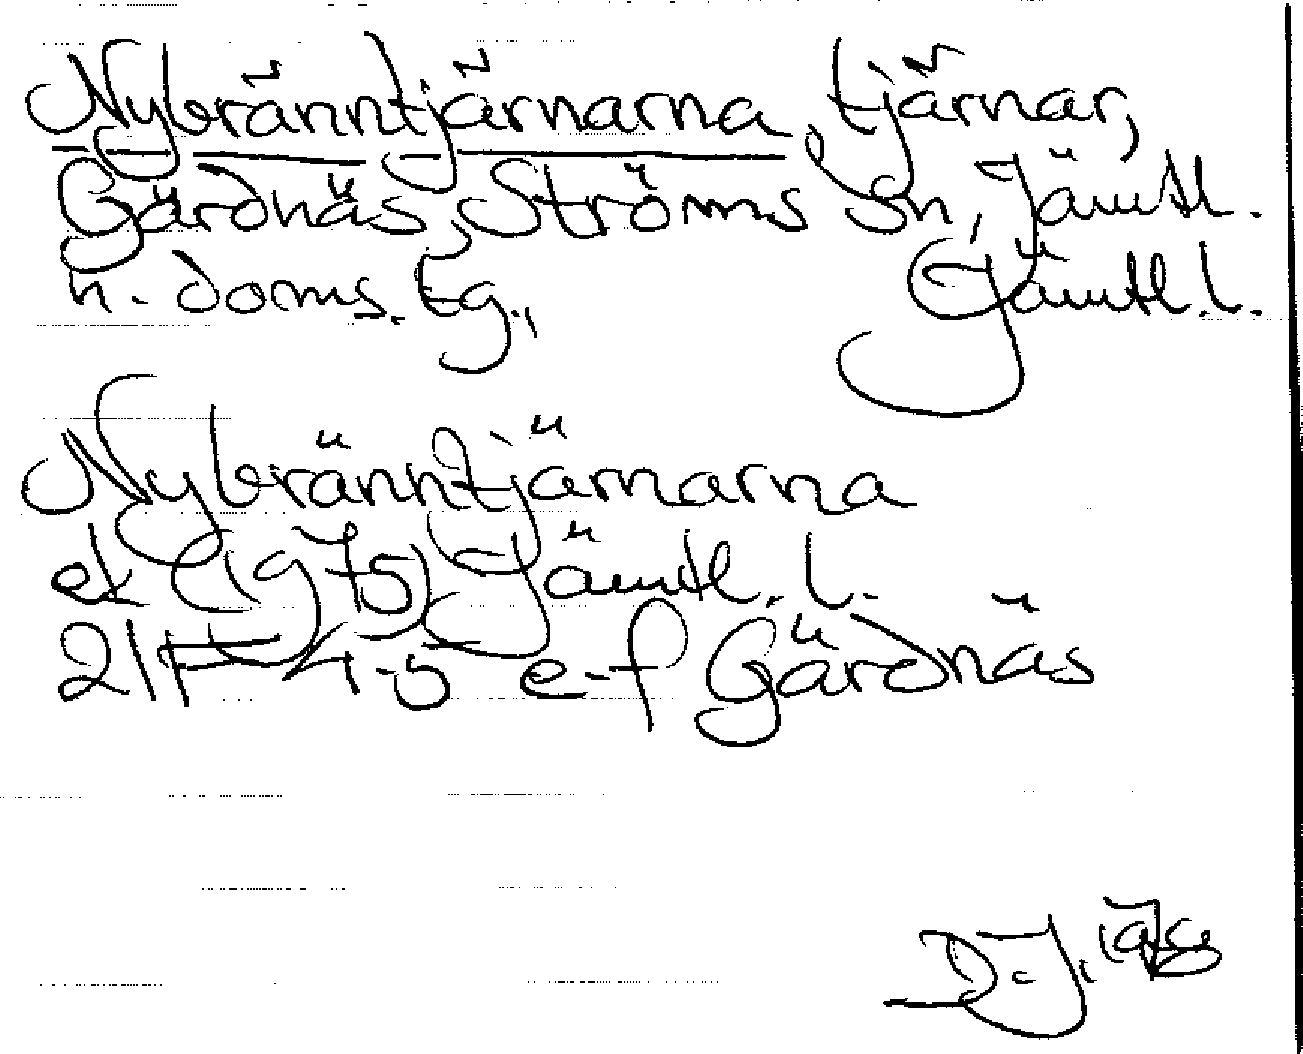 Nybränntjärnarna, tjärnar,
Gärdnäs, Ströms sn, Jämtl.
n. doms. tg., Jämtl. l.
Nybränntjärnarna
ek (1975) Jämtl. l.
21F 4-5 e-f Gärdnäs
D. J.